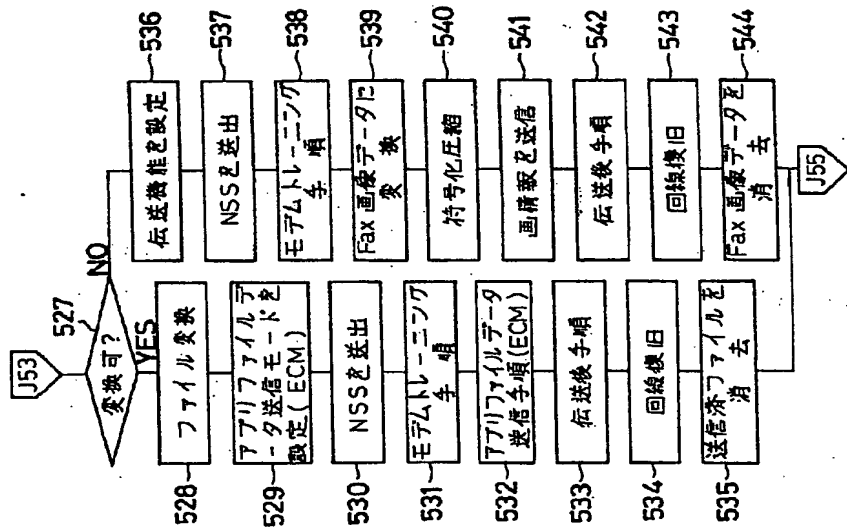 J53
変換可?
527
NO
YES
ファイル変換
528
アプリファイルデ
ータ送信モードを
設定(ECM)
529
NSSを送出
530
モデムトレーニング
手順
531
アプリファイルデータ
送信手順(ECM)
532
伝送後手順
533
回線復旧
534
送信済ファイルを
消去
535
伝送機能を設定
536
NSSを送出
537
モデムトレーニング
手順
538
Fax画像データに
変換
539
符号化圧縮
540
画情報を送信
541
伝送後手順
542
回線復旧
543
Fax画像データを
消去
544
J55